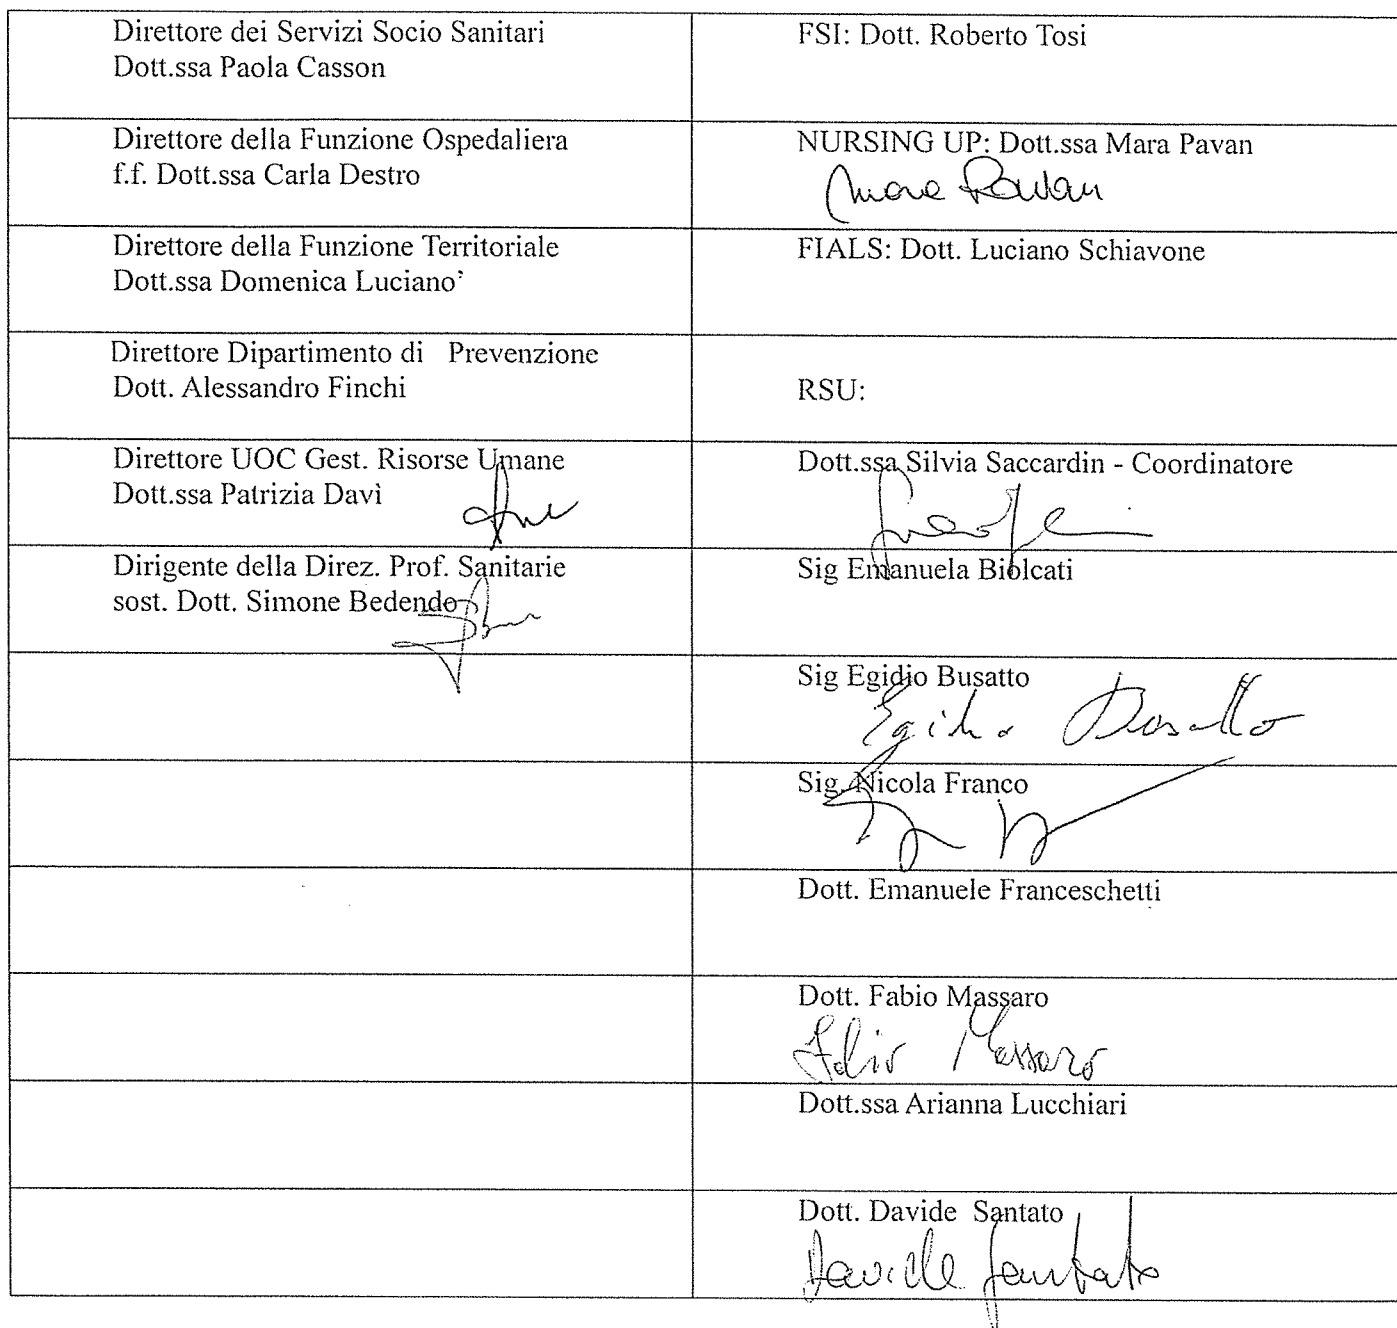 Direttore dei Servizi Socio Sanitari
Dott.ssa Paola Casson
FSI: Dott. Roberto Tosi
Direttore della Funzione Ospedaliera
f.f. Dott.ssa Carla Destro
NURSING UP: Dott.ssa Mara Pavan
Mara Pavan
Direttore della Funzione Territoriale
Dott.ssa Domenica Luciano'
FIALS: Dott. Luciano Schiavone
Direttore Dipartimento di Prevenzione
Dott. Alessandro Finchi
RSU:
Direttore UOC Gest. Risorse Umane
Dott.ssa Patrizia Davì
Dott.ssa Silvia Saccardin - Coordinatore
Dirigente della Direz. Prof. Sanitarie
sost. Dott. Simone Bedendo
Sig Emanuela Biolcati
Sig Egidio Busatto
Egidio Busatto
Sig. Nicola Franco
Dott. Emanuele Franceschetti
Dott. Fabio Massaro
Fabio Massaro
Dott.ssa Arianna Lucchiari
Dott. Davide Santato
Davide Santato